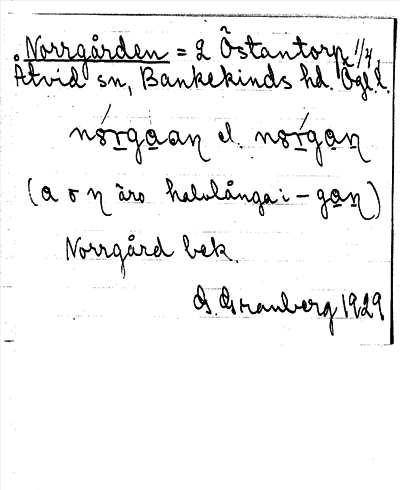 Norrgården = 2 Östantorp, 1/4,
Åtvid sn, Bankekinds hd. Ögl.
nórgaan el. nórgan
(a o n äro halvlånga i -gan)
Norrgård bek.
G. Granberg 1929